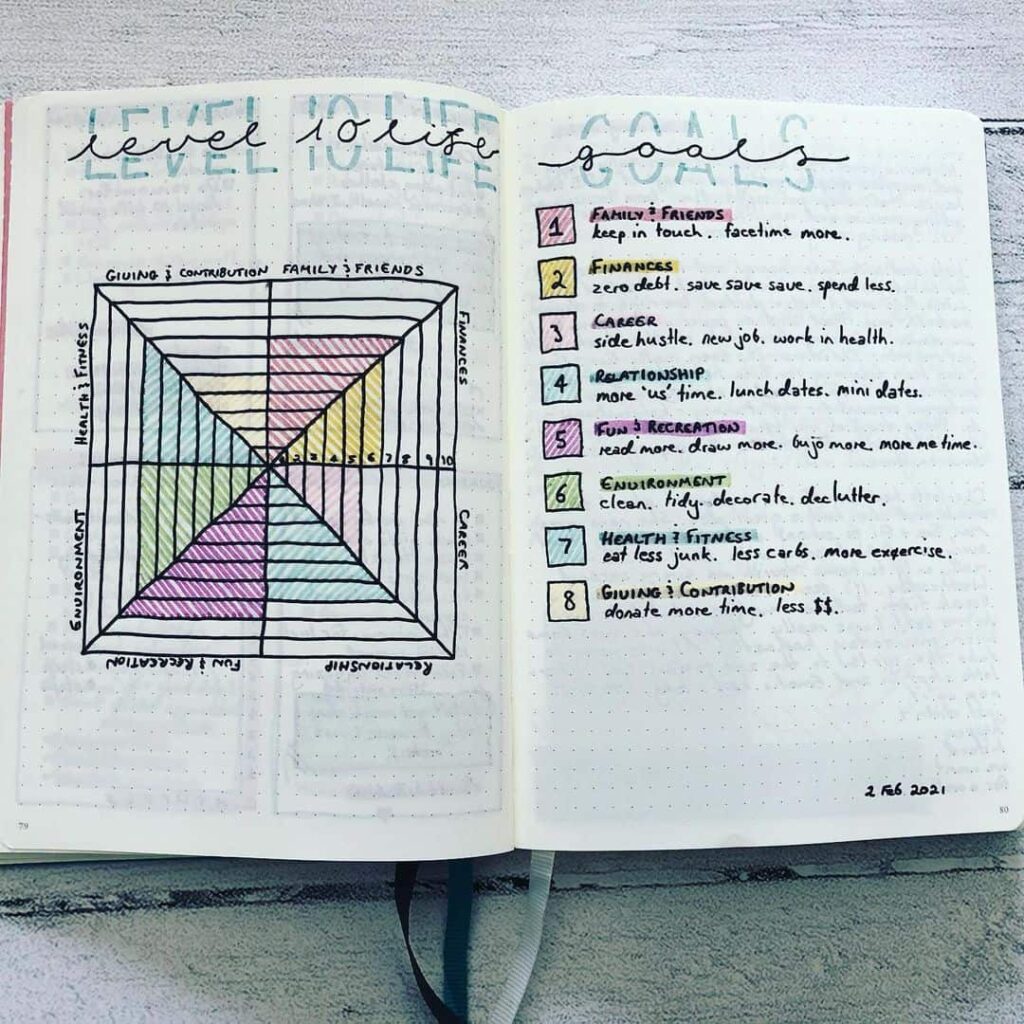 LEVEL 10 LIFE
level 10 life
GIVING & CONTRIBUTION FAMILY & FRIENDS
HEALTH & FITNESS
FINANCES
1 2 3 4 5 6 7 8 9 10
ENVIRONMENT
CAREER
FUN & RECREATION RELATIONSHIP
79
GOALS
goals
1 FAMILY & FRIENDS
keep in touch. facetime more.
2 FINANCES
zero debt. save save save. spend less.
3 CAREER
side hustle. new job. work in health.
4 RELATIONSHIP
more 'us' time. lunch dates. mini dates.
5 FUN & RECREATION
read more. draw more. bujo more. more me time.
6 ENVIRONMENT
clean. tidy. decorate. declutter.
7 HEALTH & FITNESS
eat less junk. less carbs. more exercise.
8 GIVING & CONTRIBUTION
donate more time. less $$.
2 FEB 2021
80